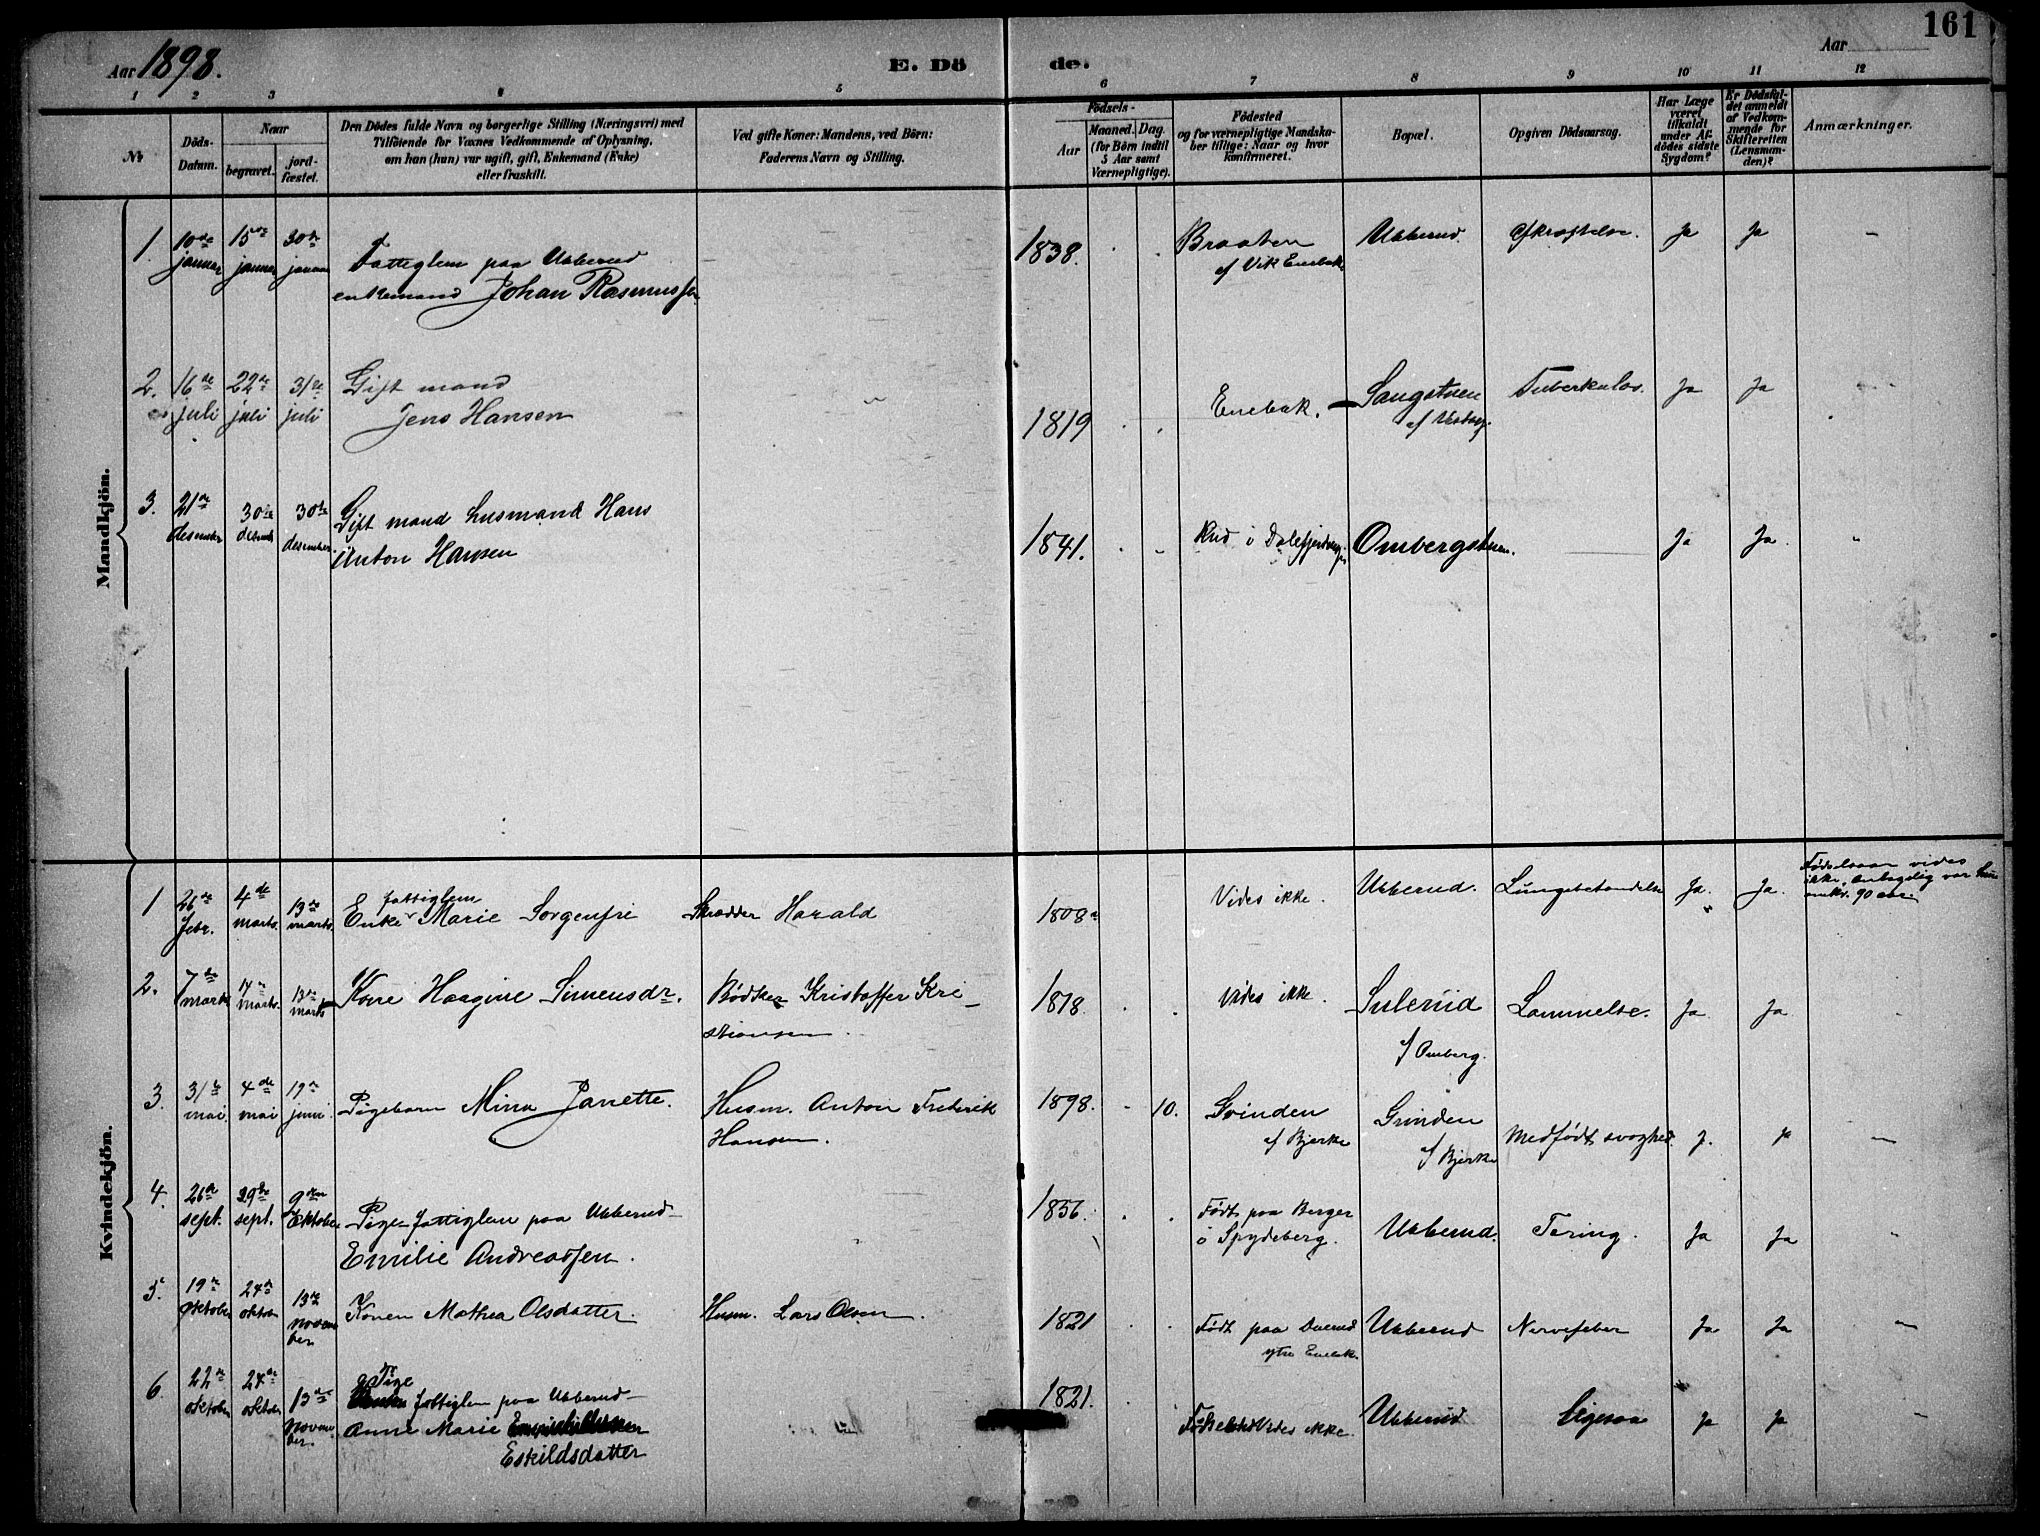 161
Aar 1898.
E. Dö
de.
Aar
1 2 3 4 5 6 7 8 9 10 11 12
№
Döds-
Datum.
Naar
begravet.
jord-
fæstet.
Den Dödes fulde Navn og borgerlige Stilling (Næringsvei) med
Tilföiende for Voxnes Vedkommende af Oplysning,
om han (hun) var ugift, gift, Enkemand (Enke)
eller fraskilt.
Ved gifte Koner: Mandens, ved Börn:
Faderens Navn og Stilling.
Födsels-
Aar
Maaned. Dag.
(for Börn indtil
5 Aar samt
Værnepligtige).
Födested
og for værnepligtige Mandska-
ber tillige: Naar og hvor
konfirmeret.
Bopæl.
Opgiven Dödsaarsag.
Har Læge
været
tilkaldt
under Af-
dödes sidste
Sygdom?
Er Dödsfal-
det anmeldt
af Vedkom-
mende for
Skifteretten
(Lensman-
den)?
Anmærkninger.
Mandkjön.
1. 10de januar 15de januar 30te januar
Fattiglem paa Ubberud
enkemand Johan Rasmussen
1838. Braaten
af Vik Enebak Ubberud. Afkræftelse. Ja Ja
2. 16de juli 22de juli 31te juli
Gift mand
Jens Hansen
1819 Enebak. Tuberkulos. Ja Ja
3. 21de desember 30te desemb 30te desember
Gift mand husmand Hans
Anton Hansen
1841. Rud i Ombergstuen. Ja Ja.
Kvindekjön.
1 26de febr. 4de marts. 13de marts.
fattiglem
Enke Marie Sorgenfri Skrædder Harald
1808 Vides ikke. Ubberud. Lungebetændelse Ja. Ja.
Fødselsaar vides
ikke, antagelig var hun
omkr. 90 aar
2. 7de marts marts. 13de marts
Kone Haagine Simensdr. Bødker Kristoffer Kri-
stiansen
1818. Vides ikke. Suleriid
af Omberg. Lammelse. Ja. Ja
3. 31te mai. 4de mai 19de juni.
Pigebarn Mina Janette. Husm. Anton Frederik
Hansen.
1898. 10. Grinden
af Bjerke Grinden
af Bjerke Medfødt svaghed. J. Ja
4. 26de sept. 29de sept. 9de Oktober
Pige fattiglem paa Ubberud
Emilie Andreassen.
1856. Født paa Berger
i Spydeberg. Ubberud. Tæring. Ja Ja
5. 19de Oktober 24de oktober 13de November
Konen Mathea Olsdatter. Husm. Lars Olsen.
1821 Født paa
ytre Enebak. Ubberud Nervefeber Ja Ja
6. 22de oktober 24de oktober 13de November.
Pige
fattiglem paa Ubberud
Anne Marie
Eskildsdatter
1821. Vides ikke. Ubberud Ligesaa Ja Ja